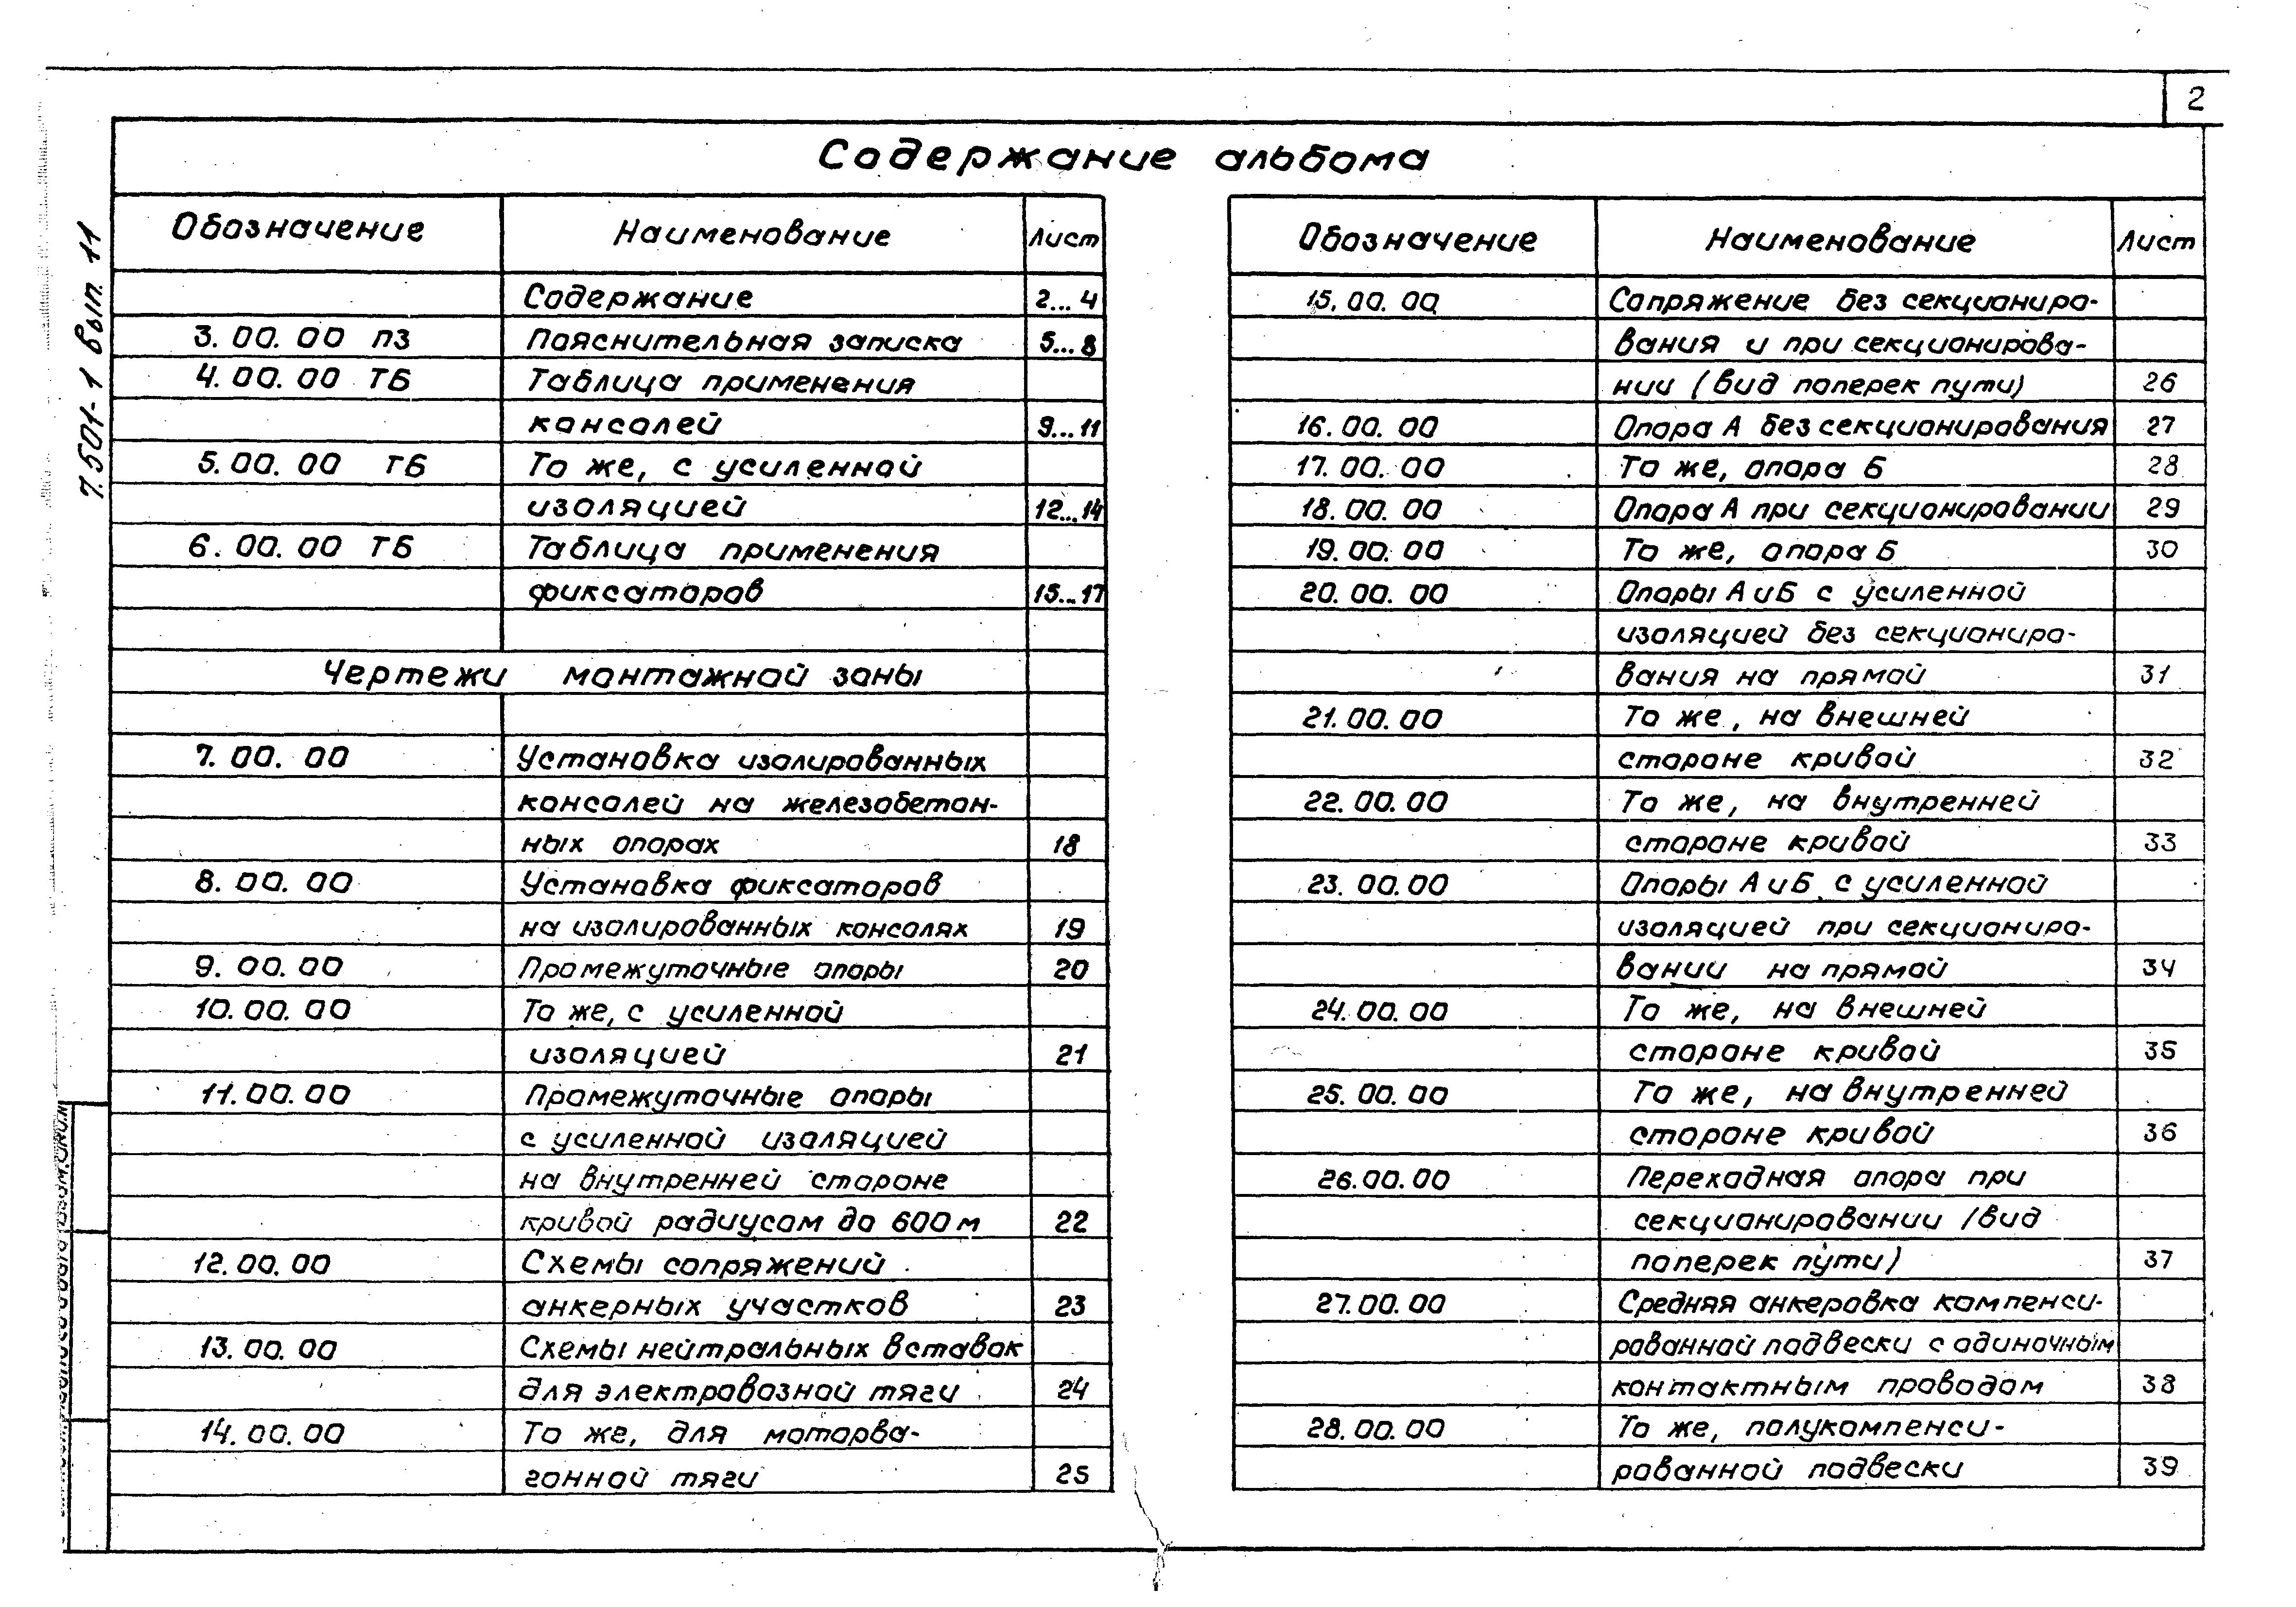 2
Содержание альбома
7.501-1 вып. 11
Обозначение Наименование Лист
Содержание 2...4
3.00.00 ПЗ Пояснительная записка 5...8
4.00.00 ТБ Таблица применения
консолей 9...11
5.00.00 ТБ То же, с усиленной
изоляцией 12...14
6.00.00 ТБ Таблица применения
фиксаторов 15...17
Чертежи монтажной зоны
7.00.00 Установка изолированных
консолей на железобетон-
ных опорах 18
8.00.00 Установка фиксаторов
на изолированных консолях 19
9.00.00 Промежуточные опоры 20
10.00.00 То же, с усиленной
изоляцией 21
11.00.00 Промежуточные опоры
с усиленной изоляцией
на внутренней стороне
кривой радиусом до 600 м 22
12.00.00 Схемы сопряжений
анкерных участков 23
13.00.00 Схемы нейтральных вставок
для электровозной тяги 24
14.00.00 То же, для моторва-
гонной тяги 25
Обозначение Наименование Лист
15.00.00 Сопряжение без секциониро-
вания и при секционирова-
нии (вид поперек пути) 26
16.00.00 Опора А без секционирования 27
17.00.00 То же, опора Б 28
18.00.00 Опора А при секционировании 29
19.00.00 То же, опора Б 30
20.00.00 Опоры А и Б с усиленной
изоляцией без секциониро-
вания на прямой 31
21.00.00 То же, на внешней
стороне кривой 32
22.00.00 То же, на внутренней
стороне кривой 33
23.00.00 Опоры А и Б с усиленной
изоляцией при секциониро-
вании на прямой 34
24.00.00 То же, на внешней
стороне кривой 35
25.00.00 То же, на внутренней
стороне кривой 36
26.00.00 Переходная опора при
секционировании /вид
поперек пути) 37
27.00.00 Средняя анкеровка компенси-
рованной подвески с одиночным
контактным проводом 38
28.00.00 То же, полукомпенси-
рованной подвески 39